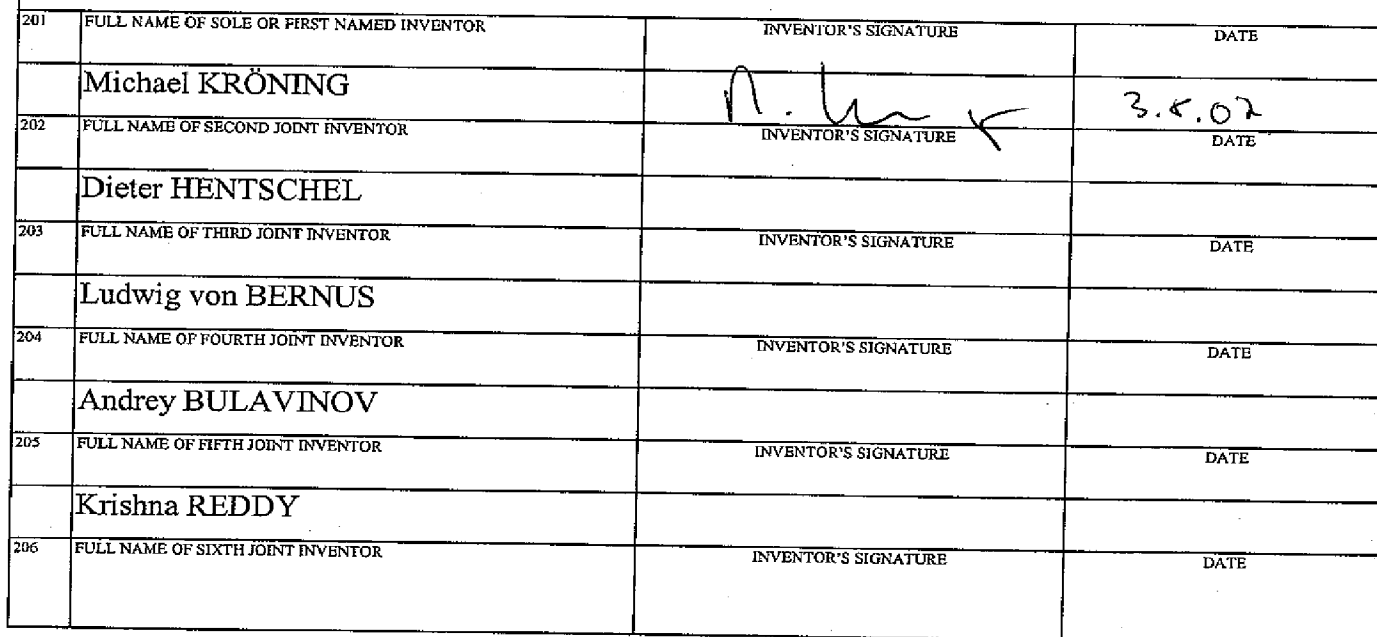 201 FULL NAME OF SOLE OR FIRST NAMED INVENTOR INVENTOR'S SIGNATURE DATE
Michael KRÖNING 3.8.07
202 FULL NAME OF SECOND JOINT INVENTOR INVENTOR'S SIGNATURE DATE
Dieter HENTSCHEL
203 FULL NAME OF THIRD JOINT INVENTOR INVENTOR'S SIGNATURE DATE
Ludwig von BERNUS
204 FULL NAME OF FOURTH JOINT INVENTOR INVENTOR'S SIGNATURE DATE
Andrey BULAVINOV
205 FULL NAME OF FIFTH JOINT INVENTOR INVENTOR'S SIGNATURE DATE
Krishna REDDY
206 FULL NAME OF SIXTH JOINT INVENTOR INVENTOR'S SIGNATURE DATE